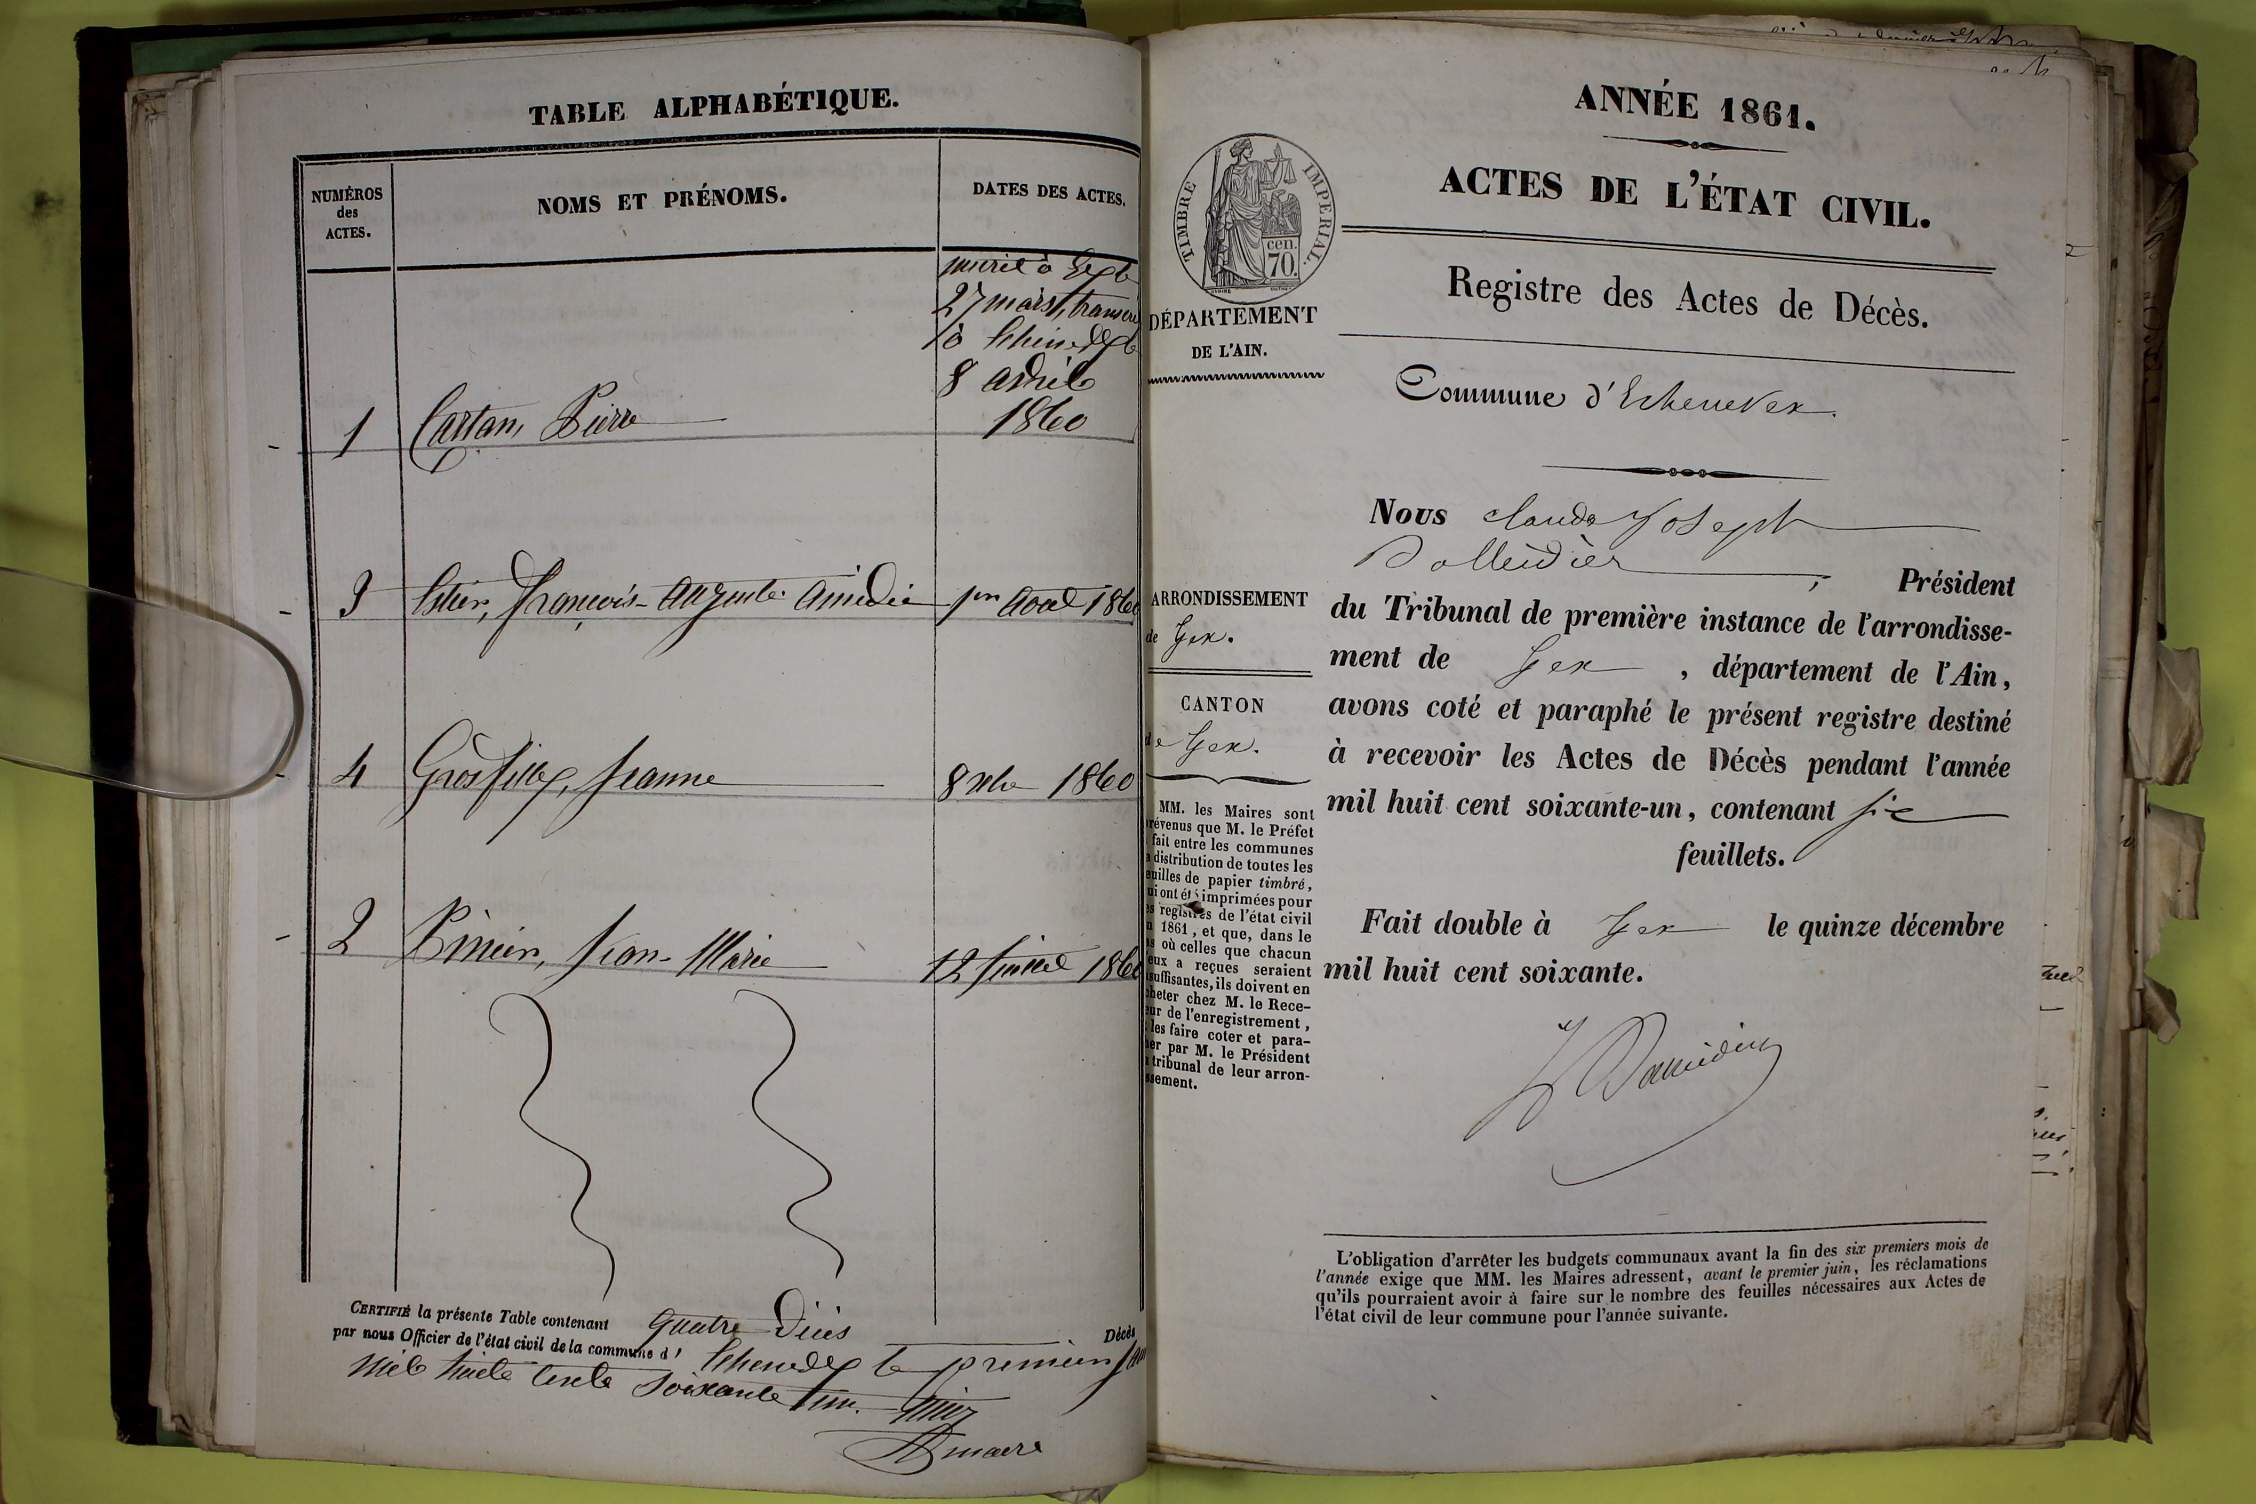 TABLE ALPHABÉTIQUE.
NUMÉROS
des
ACTES.
NOMS ET PRÉNOMS.
DATES DES ACTES.
27 mars, transcrit
8 avril
1860
1 Cartan, Pierre
3 François-Auguste Amédée 1er Aout 1860
4 Grosfilley, Jeanne 8 xbre 1860
2 Jean-Marie 12 Juillet 1860
CERTIFIÉ la présente Table contenant quatre Décès
par nous Officier de l'état civil de la commune d' Echenevex le premier Jan
mile huite cents soixante un.
maire
ANNÉE 1861.
ACTES DE L'ÉTAT CIVIL.
TIMBRE IMPERIAL.
cen.
70.
Registre des Actes de Décès.
DÉPARTEMENT
DE L'AIN.
Commune d'Echenevex.
ARRONDISSEMENT
de Gex.
CANTON
de Gex.
MM. les Maires sont
révenus que M. le Préfet
fait entre les communes
a distribution de toutes les
euilles de papier timbré,
ui ont été imprimées pour
es registres de l'état civil
n 1861, et que, dans le
as où celles que chacun
eux a reçues seraient
suffisantes, ils doivent en
cheter chez M. le Rece-
eur de l'enregistrement,
les faire coter et para-
her par M. le Président
u tribunal de leur arron-
ssement.
Nous Claude Joseph
, Président
du Tribunal de première instance de l'arrondisse-
ment de Gex, département de l'Ain,
avons coté et paraphé le présent registre destiné
à recevoir les Actes de Décès pendant l'année
mil huit cent soixante-un, contenant six
feuillets.
Fait double à Gex le quinze décembre
mil huit cent soixante.
L'obligation d'arrêter les budgets communaux avant la fin des six premiers mois de
l'année exige que MM. les Maires adressent, avant le premier juin, les réclamations
qu'ils pourraient avoir à faire sur le nombre des feuilles nécessaires aux Actes de
l'état civil de leur commune pour l'année suivante.